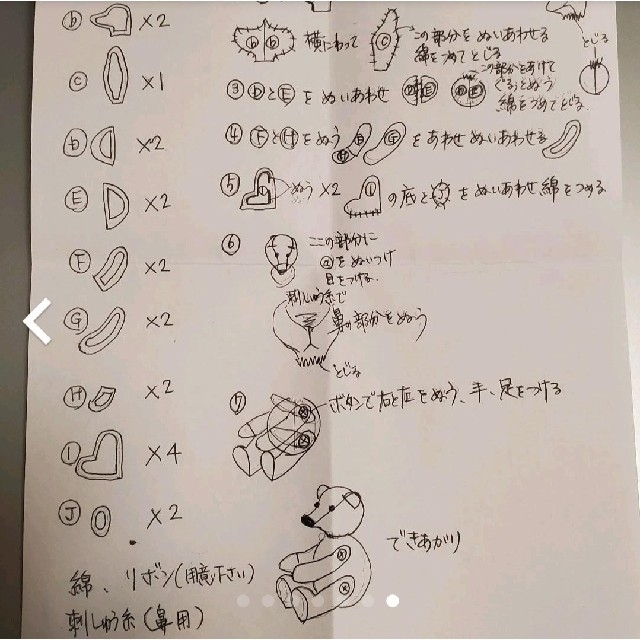 ⓑ ×2
ⓒ ×1
Ⓓ ×2
Ⓔ ×2
Ⓕ ×2
Ⓖ ×2
Ⓗ ×2
Ⓘ ×4
Ⓙ ×2
綿、リボン(用意下さい)
刺しゅう糸(鼻用)
横にわって
この部分をぬいあわせる
綿をつめてとじる
とじる
③ ⒹとⒺをぬいあわせ
この部分をあけて
ぐるっとぬう
綿をつめてとじる
④ ⒻとⒽをぬう
Ⓖをあわせぬいあわせる
⑤ ぬう×2
の底と
をぬいあわせ綿をつめる
⑥ ここの部分に
ⓐをぬいつけ
目をつける
刺しゅう糸で
鼻の部分をぬう
とじる
⑦ ボタンで右と左をぬう、手、足をつける
できあがり